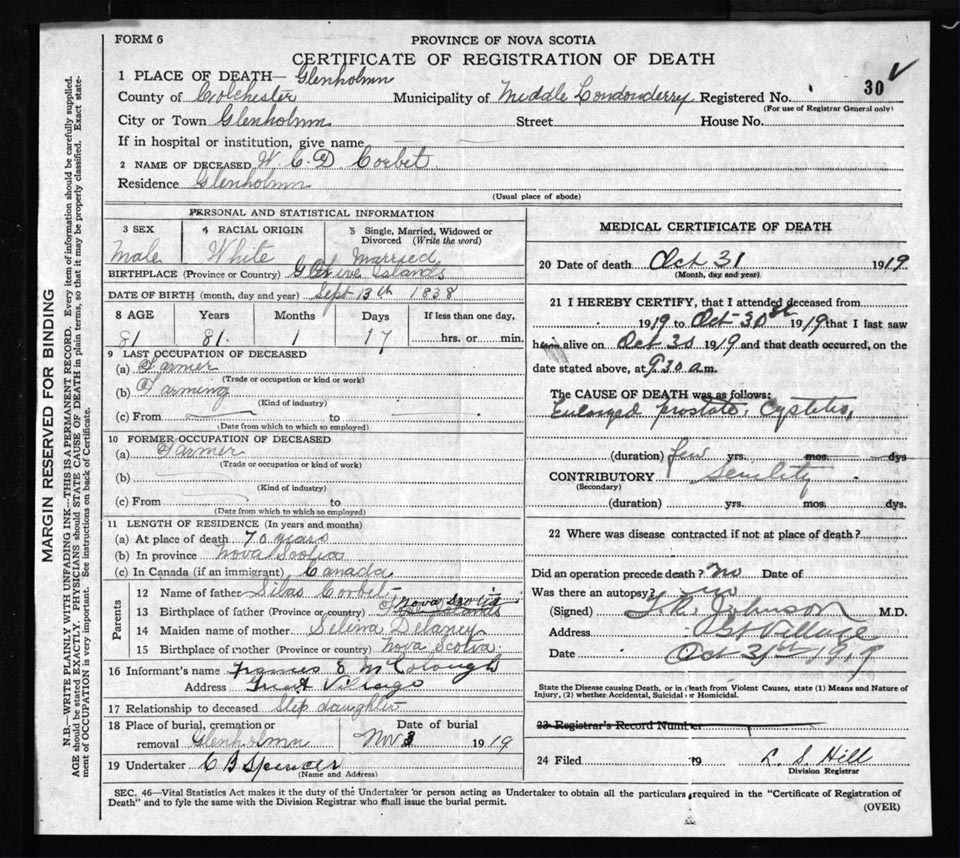 FORM 6
PROVINCE OF NOVA SCOTIA
CERTIFICATE OF REGISTRATION OF DEATH
1 PLACE OF DEATH— Glenholmn
County of Colchester Municipality of Middle Londonderry Registered No. 30 √
(For use of Registrar General only)
City or Town Glenholmn Street House No.
If in hospital or institution, give name
2 NAME OF DECEASED W. C. D Corbet
Residence Glenholmn
(Usual place of abode)
PERSONAL AND STATISTICAL INFORMATION
3 SEX 4 RACIAL ORIGIN 5 Single, Married, Widowed or Divorced (Write the word)
Male White Married
BIRTHPLACE (Province or Country) Five Islands
DATE OF BIRTH (month, day and year) Sept 13th 1838
8 AGE Years Months Days If less than one day,
81 81. 1 17 hrs. or min.
9 LAST OCCUPATION OF DECEASED
(a) Farmer
(Trade or occupation or kind or work)
(b) Farming
(Kind of industry)
(c) From to
(Date from which to which so employed)
10 FORMER OCCUPATION OF DECEASED
(a) Farmer
(Trade or occupation or kind of work)
(b)
(Kind of industry)
(c) From to
(Date from which to which so employed)
11 LENGTH OF RESIDENCE (In years and months)
(a) At place of death 70 years
(b) In province Nova Scotia
(c) In Canada (if an immigrant) Canada
Parents
12 Name of father Silas Corbet
13 Birthplace of father (Province or country) Nova Scotia
14 Maiden name of mother Selina Delaney
15 Birthplace of mother (Province or country) Nova Scotia
16 Informant's name Frances E McColough
Address Great Village
17 Relationship to deceased Step daughter
18 Place of burial, cremation or removal Glenholmn Date of burial Nov 3 1919
19 Undertaker C B Spencer
(Name and Address)
MEDICAL CERTIFICATE OF DEATH
20 Date of death Oct 31 1919
(Month, day and year)
21 I HEREBY CERTIFY, that I attended deceased from
1919 to Oct 30st 1919 that I last saw
him alive on Oct 30 1919 and that death occurred, on the
date stated above, at 9.30 a.m.
The CAUSE OF DEATH was as follows:
Enlarged prostate, Cystitis,
(duration) few yrs. mos. dys
CONTRIBUTORY Senility
(Secondary)
(duration) yrs. mos. dys.
22 Where was disease contracted if not at place of death?
Did an operation precede death? no Date of
Was there an autopsy? no
(Signed) T. R. Johnson M.D.
Address Gt Village
Date Oct 31st, 1919
State the Disease causing Death, or in death from Violent Causes, state (1) Means and Nature of
Injury, (2) whether Accidental, Suicidal or Homicidal.
23 Registrar's Record Number
24 Filed 19 L. S. Hill
Division Registrar
SEC. 46—Vital Statistics Act makes it the duty of the Undertaker or person acting as Undertaker to obtain all the particulars required in the "Certificate of Registration of
Death" and to fyle the same with the Division Registrar who shall issue the burial permit.
(OVER)
MARGIN RESERVED FOR BINDING
N.B.—WRITE PLAINLY WITH UNFADING INK—THIS IS A PERMANENT RECORD. Every item of information should be carefully supplied.
AGE should be stated EXACTLY. PHYSICIANS should STATE CAUSE OF DEATH in plain terms, so that it may be properly classified. Exact state-
ment of OCCUPATION is very important. See instructions on back of Certificate.